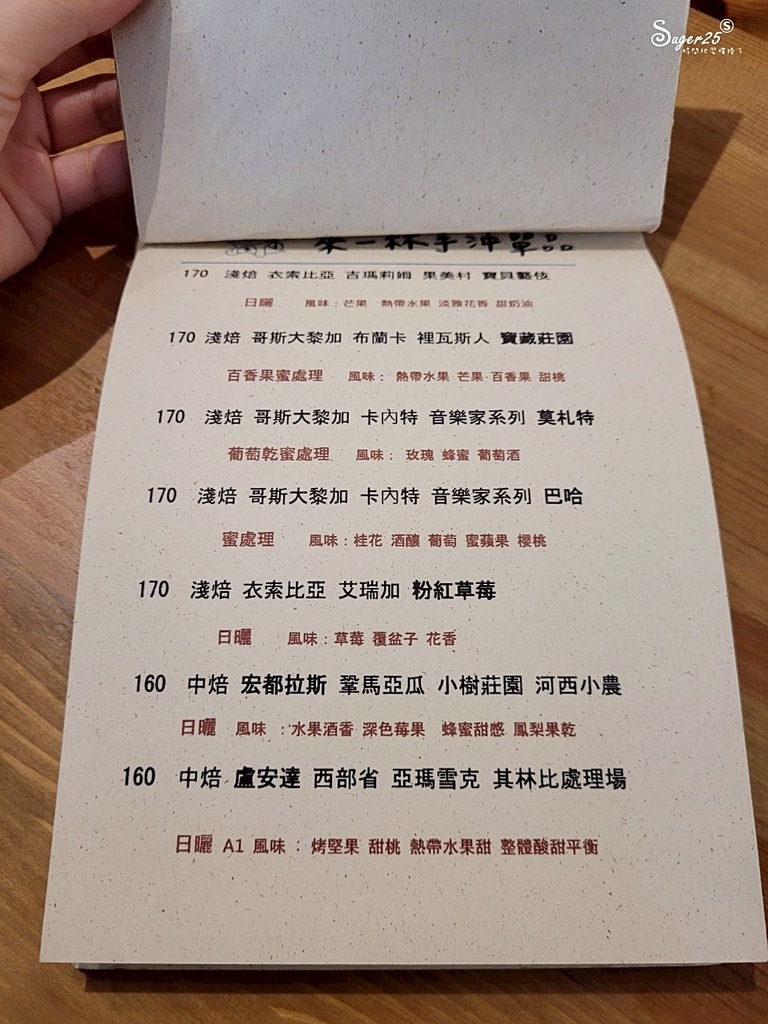 Suger25
時間把習慣換了
來一杯手沖單品
170 淺焙 衣索比亞 吉瑪莉姆 果美村 寶貝藝伎
日曬 風味:芒果 熱帶水果 淡雅花香 甜奶油
170 淺焙 哥斯大黎加 布蘭卡 裡瓦斯人 寶藏莊園
百香果蜜處理 風味: 熱帶水果 芒果 百香果 甜桃
170 淺焙 哥斯大黎加 卡內特 音樂家系列 莫札特
葡萄乾蜜處理 風味: 玫瑰 蜂蜜 葡萄酒
170 淺焙 哥斯大黎加 卡內特 音樂家系列 巴哈
蜜處理 風味:桂花 酒釀 葡萄 蜜蘋果 櫻桃
170 淺焙 衣索比亞 艾瑞加 粉紅草莓
日曬 風味:草莓 覆盆子 花香
160 中焙 宏都拉斯 鞏馬亞瓜 小樹莊園 河西小農
日曬 風味 :水果酒香 深色莓果 蜂蜜甜感 鳳梨果乾
160 中焙 盧安達 西部省 亞瑪雪克 其林比處理場
日曬 A1 風味 : 烤堅果 甜桃 熱帶水果甜 整體酸甜平衡